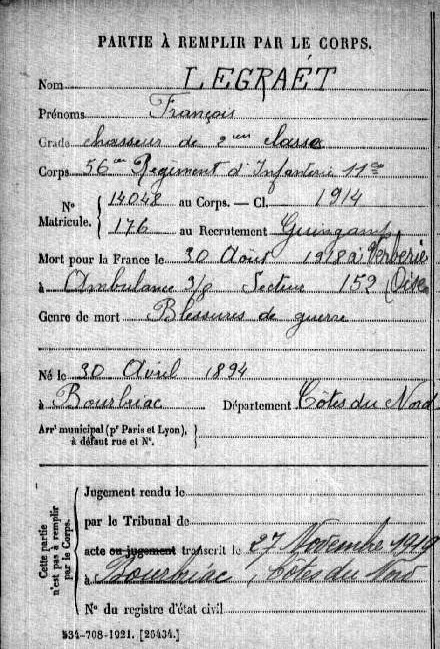 PARTIE À REMPLIR PAR LE CORPS.
Nom LEGRAËT
Prénoms François
Grade chasseur de 2ème classe
Corps 56me Régiment d'Infanterie 11ce
N° Matricule. { 14048 au Corps. — Cl. 1914
176 au Recrutement Guingamp
Mort pour la France le 30 Août 1918 à Verberie
à Ambulance 3/6 Secteur 152 (Oise
Genre de mort Blessures de guerre
Né le 30 Avril 1894
à Bourbriac Département Côtes du Nord
Arrt municipal (pr Paris et Lyon), à défaut rue et N°. }
Cette partie n'est pas à remplir par le Corps.
Jugement rendu le
par le Tribunal de
acte ou jugement transcrit le 27 Novembre 1919
à Bourbriac, Côtes du Nord
N° du registre d'état civil
534-708-1921. [26434.]